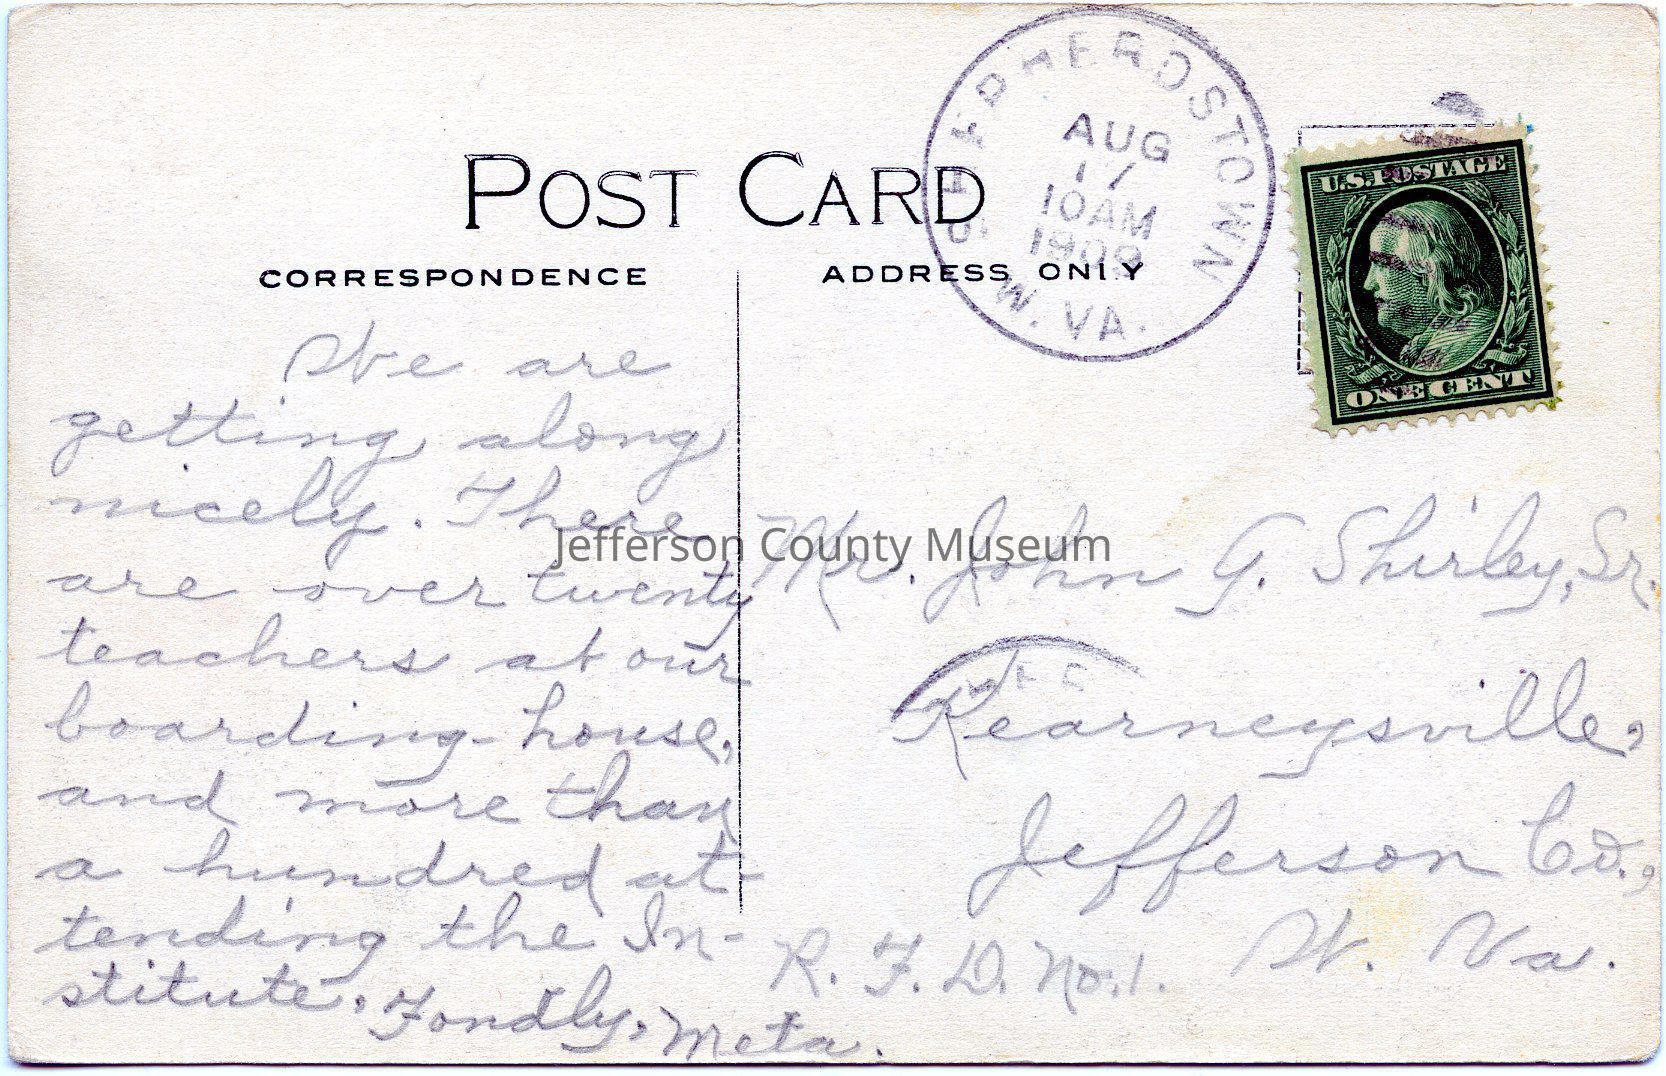 POST CARD
CORRESPONDENCE
ADDRESS ONLY
SHEPHERDSTOWN
AUG
17
10 AM
1909
W. VA.
U.S. POSTAGE
ONE CENT
We are
getting along
nicely. There
are over twenty
teachers at our
boarding-house,
and more than
a hundred at-
tending the In-
stitute. Fondly, Meta.
Jefferson County Museum
Mr. John G. Shirley, Sr.
Kearneysville,
Jefferson Co.,
R. F. D. No. 1. W. Va.